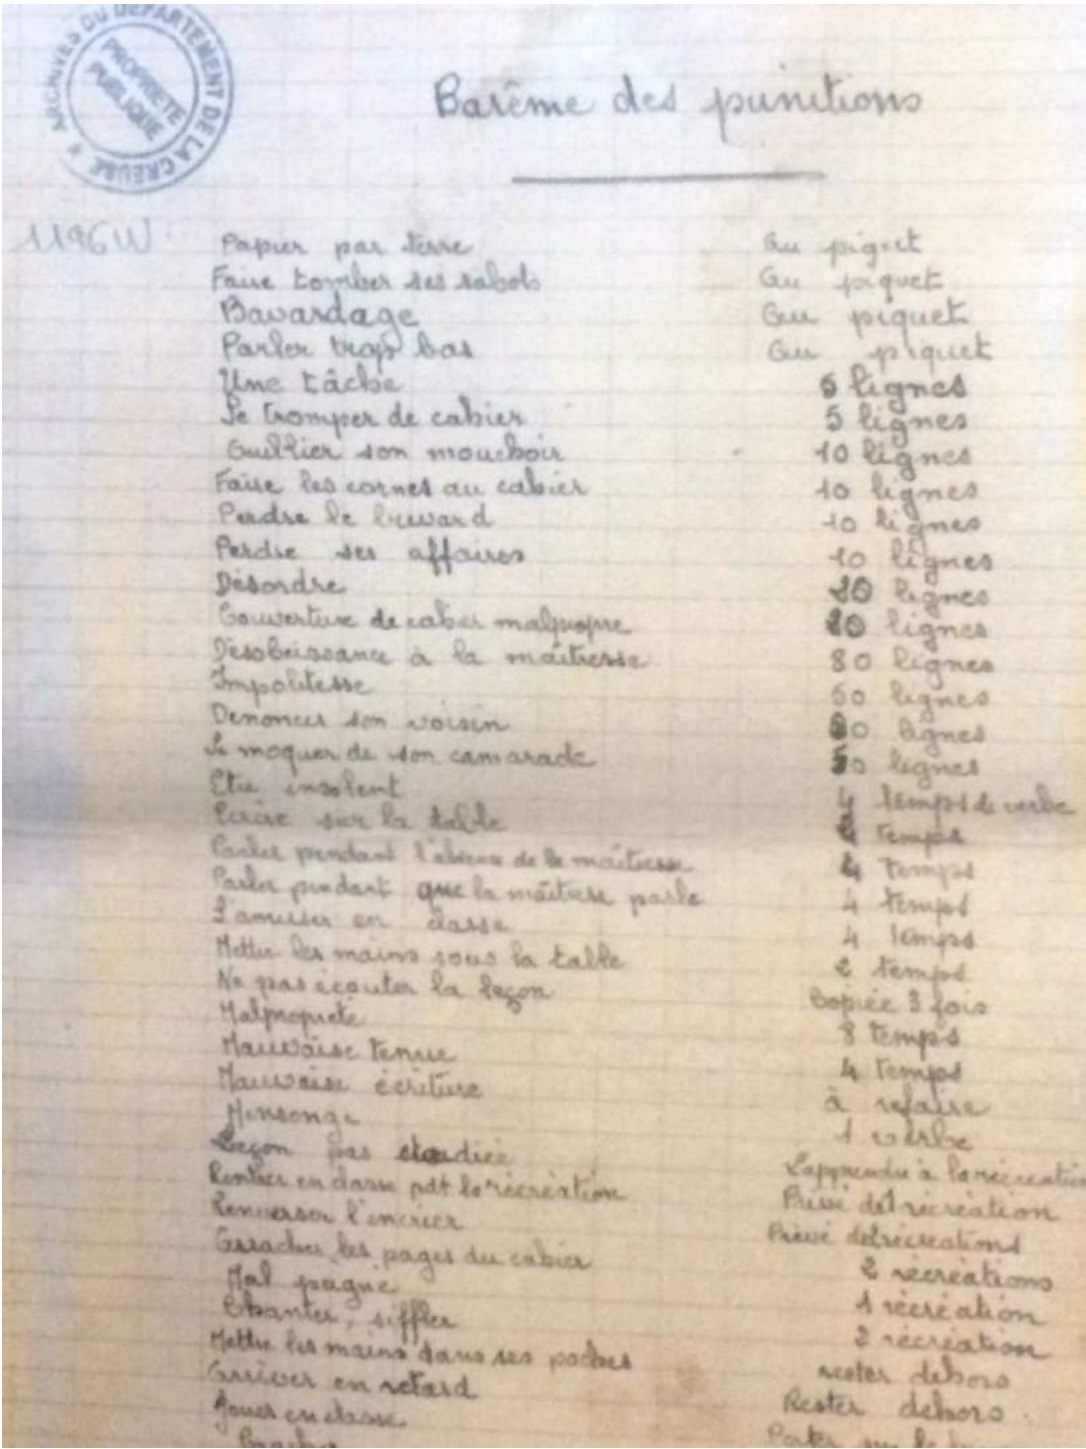 ARCHIVES DU DEPARTEMENT DE LA CREUSE
PROPRIETE
PUBLIQUE
Barême des punitions
1196W
Papier par terre Au piquet
Faire tomber ses sabots Au piquet
Bavardage Au piquet
Parler trop bas Au piquet
Une tâche 5 lignes
Se tromper de cahier 5 lignes
Oublier son mouchoir 10 lignes
Faire les cornes au cahier 10 lignes
Perdre le buvard 10 lignes
Perdre ses affaires 10 lignes
Désordre 20 lignes
Couverture de cahier malpropre lignes
Désobéissance à la maîtresse 80 lignes
Impolitesse 50 lignes
Dénoncer son voisin lignes
Se moquer de son camarade 50 lignes
Etre insolent 4 temps de verbe
Ecrire sur la table temps
Parler pendant l'absence de la maîtresse 4 temps
Parler pendant que la maîtresse parle 4 temps
S'amuser en classe 4 temps
Mettre les mains sous la table 2 temps
Ne pas écouter la leçon Copiée 3 fois
Malpropreté 8 temps
Mauvaise tenue 4 temps
Mauvaise écriture à refaire
Mensonge 1 verbe
Leçon pas étudiée L'apprendre à la récréation
Rentrer en classe pdt la récréation Privé de récréation
Renverser l'encrier Privé de récréations
Arracher les pages du cahier 2 récréations
Mal peigné 1 récréation
Chanter, siffler 2 récréation
Mettre les mains dans ses poches rester dehors
Arriver en retard Rester dehors
Jouer en classe